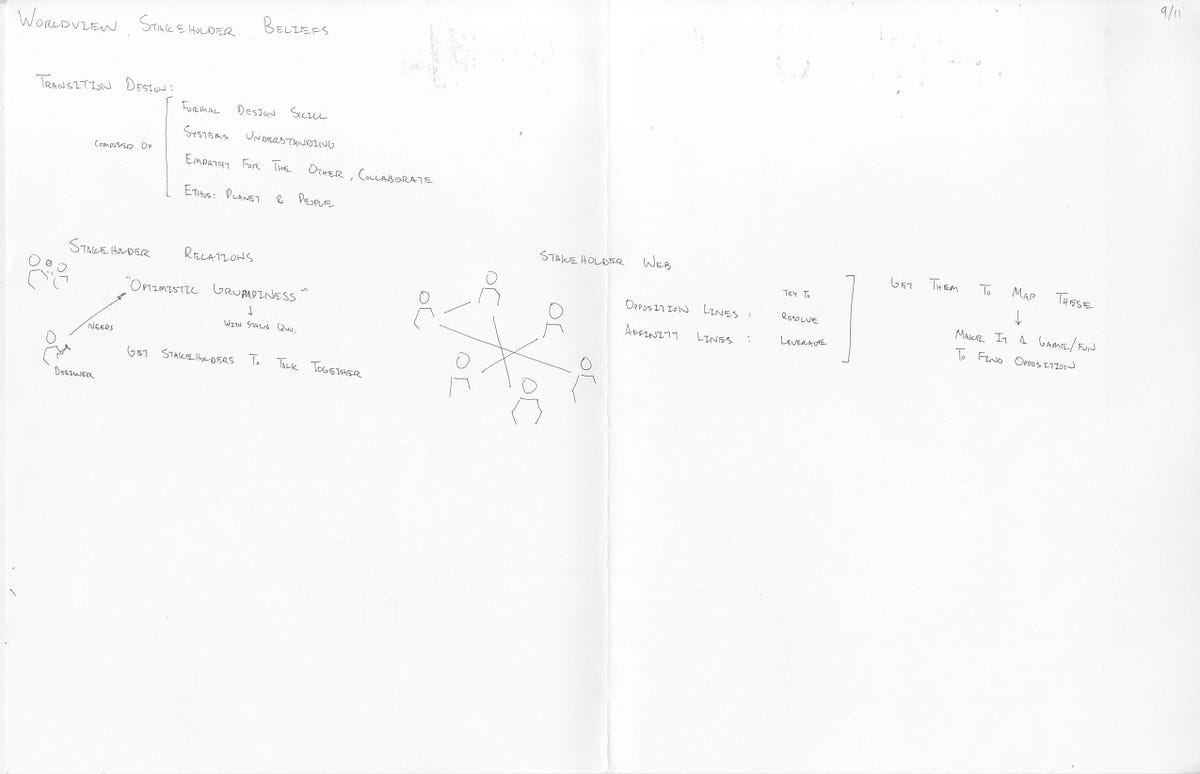 WORLDVIEW, STAKEHOLDER BELIEFS
9/11
TRANSITION DESIGN:
COMPOSED OF
FORMAL DESIGN SKILL
SYSTEMS UNDERSTANDING
EMPATHY FOR THE OTHER, COLLABORATE
ETHOS: PLANET & PEOPLE
STAKEHOLDER RELATIONS
"OPTIMISTIC GRUMPINESS"
NEEDS
WITH STATUS QUO
DESIGNER
GET STAKEHOLDERS TO TALK TOGETHER
STAKEHOLDER WEB
OPPOSITION LINES: TRY TO RESOLVE
AFFINITY LINES: LEVERAGE
GET THEM TO MAP THESE
MAKE IT A GAME/FUN
TO FIND OPPOSITION